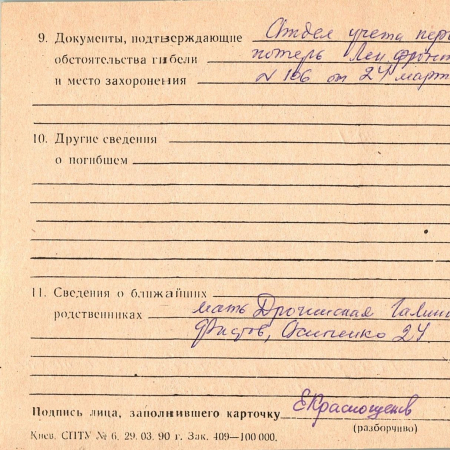 9. Документы, подтверждающие Отдел учета перс
обстоятельства гибели потерь Лен. фронт
и место захоронения № 106 от 24 март
10. Другие сведения
о погибшем
11. Сведения о ближайших
родственниках мать Дрочинская Галин
Осипенко 24
Подпись лица, заполнившего карточку ЕКраснощеков
(разборчиво)
Киев. СПТУ № 6. 29. 03. 90 г. Зак. 409—100 000.